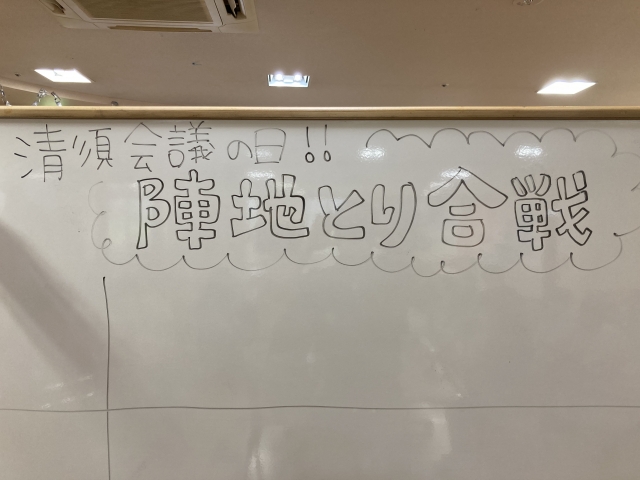 清須会議の日!!
陣地とり合戦